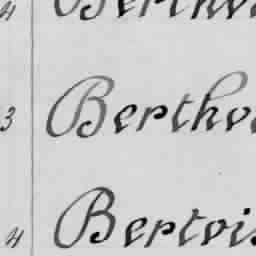 4 Bertho
3 Bertho
4 Bertois